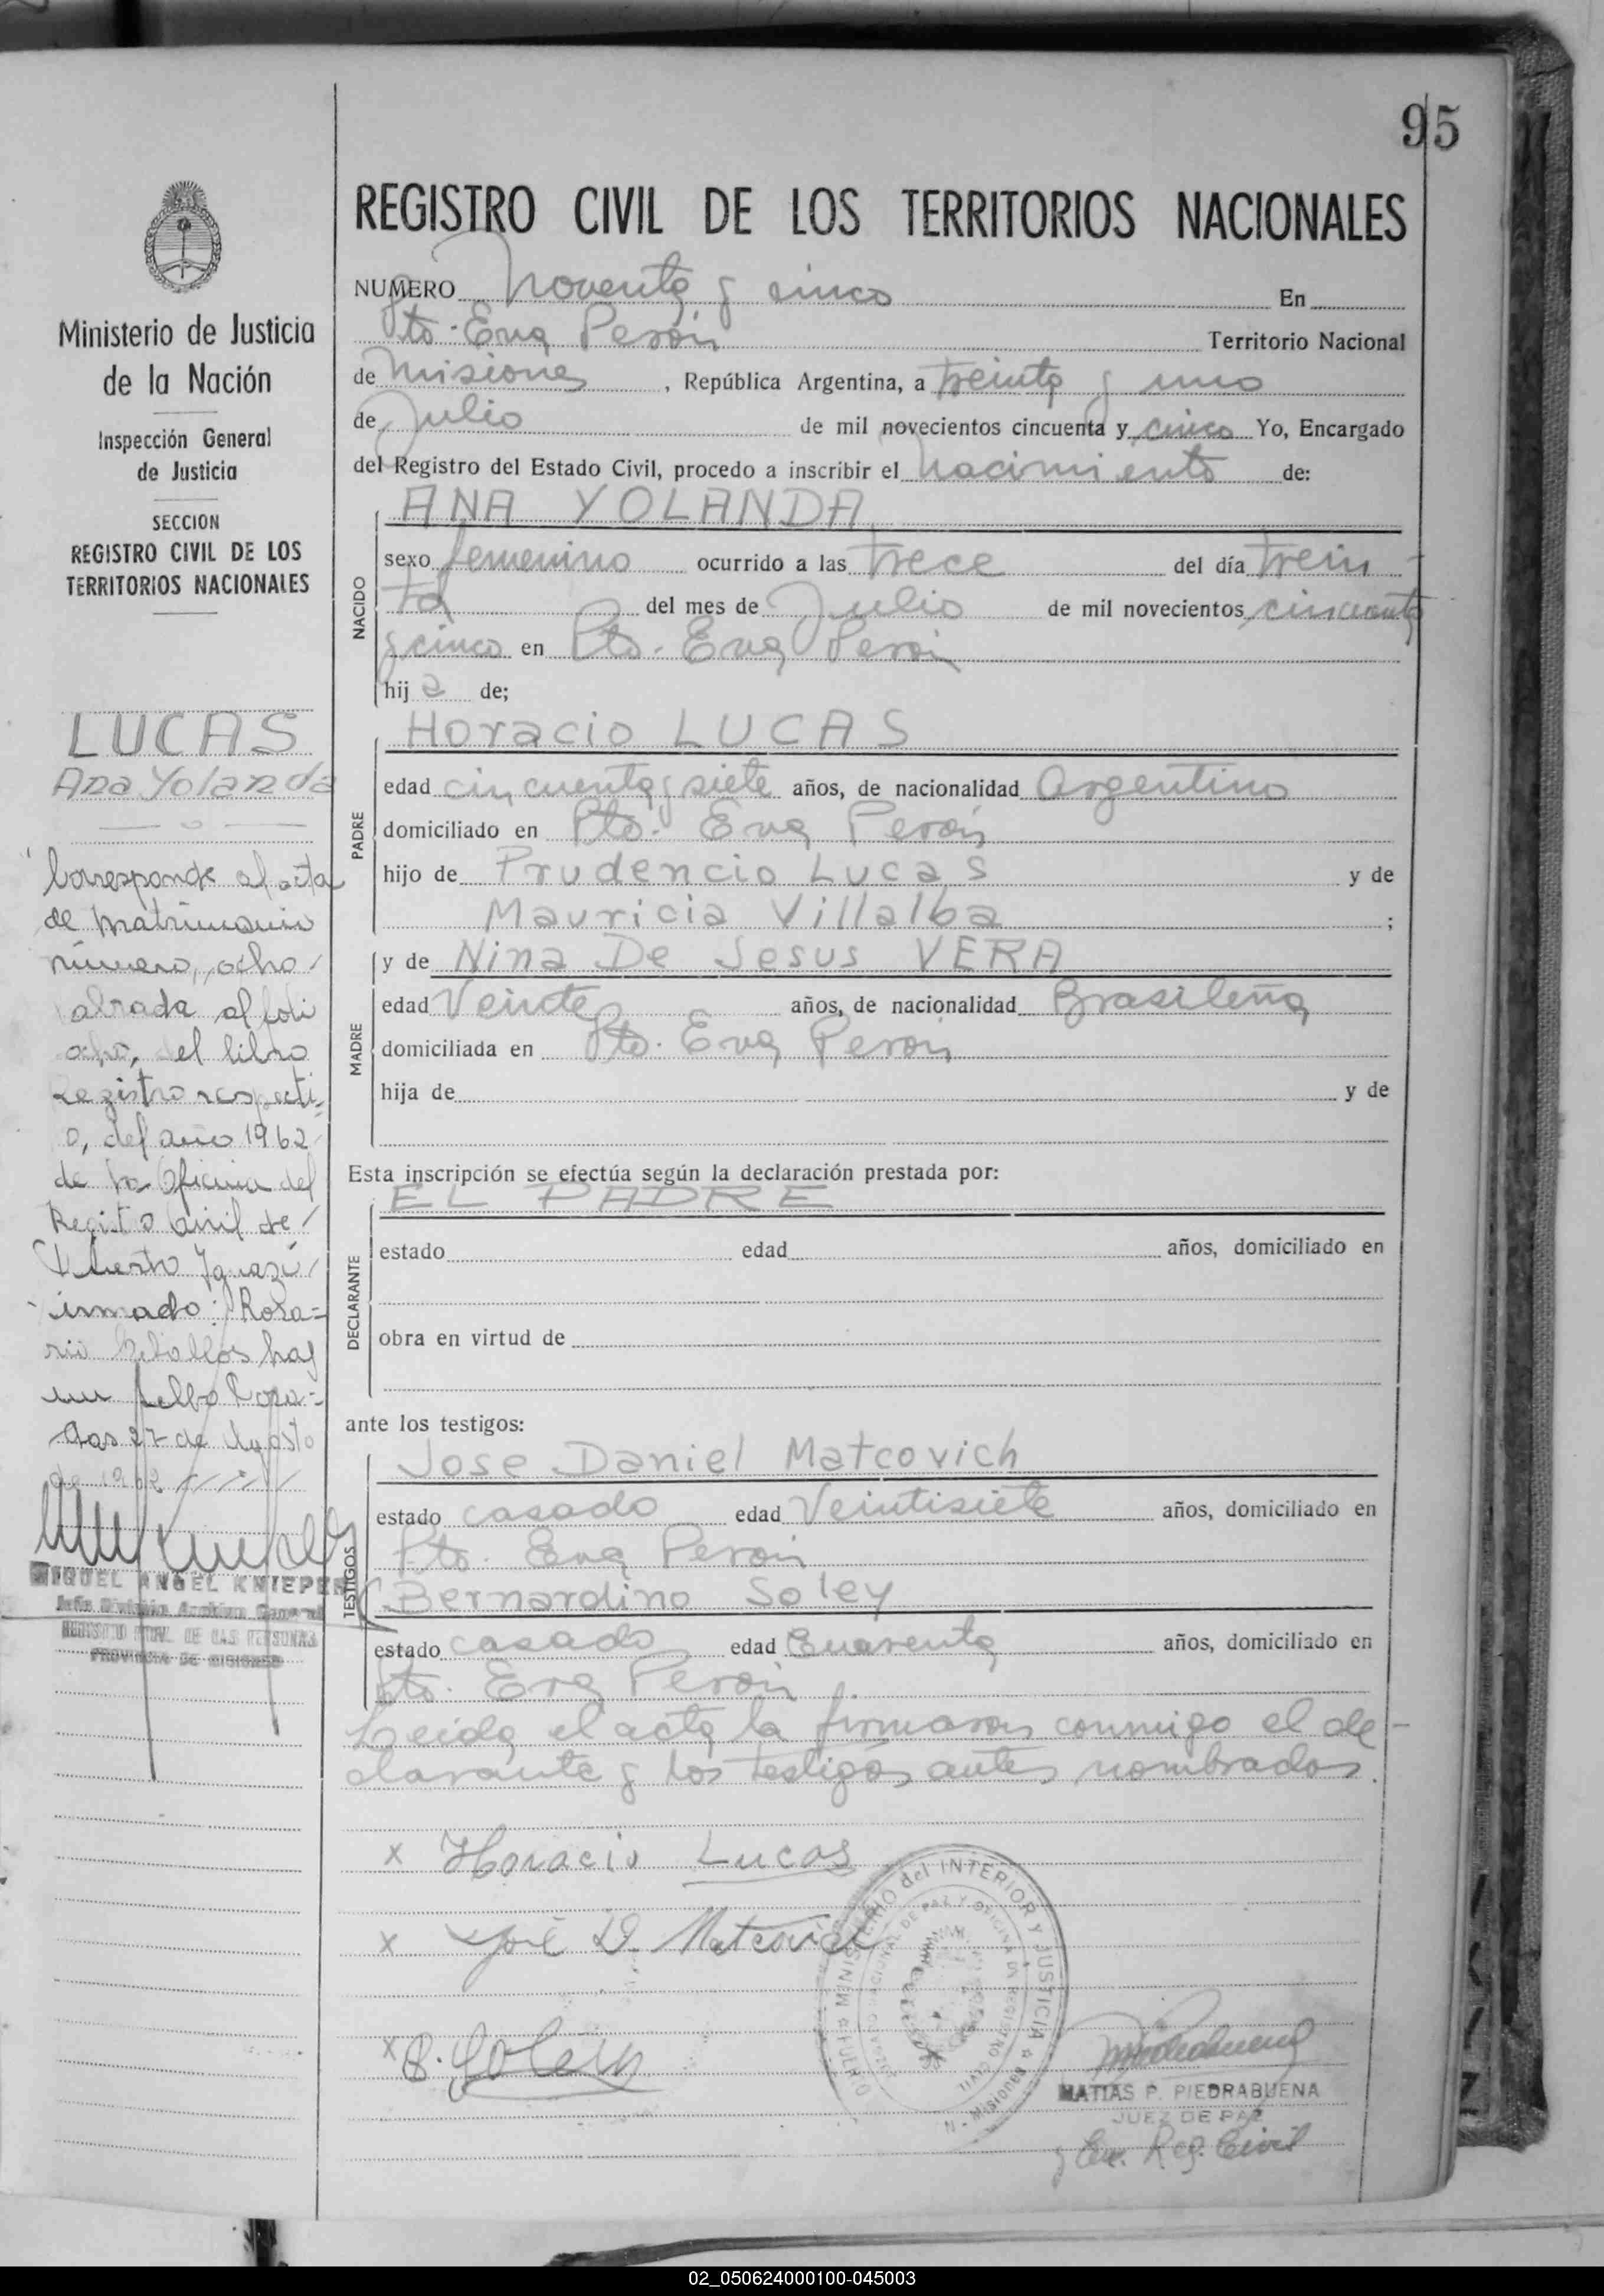 95
REGISTRO CIVIL DE LOS TERRITORIOS NACIONALES
NUMERO Noventa y cinco En
Pto. Eva Perón Territorio Nacional
de Misiones, República Argentina, a treinta y uno
de Julio de mil novecientos cincuenta y cinco Yo, Encargado
del Registro del Estado Civil, procedo a inscribir el nacimiento de:
NACIDO
ANA YOLANDA
sexo femenino ocurrido a las trece del día trein-
ta del mes de Julio de mil novecientos cincuenta
y cinco en Pto. Eva Perón
hija de;
PADRE
Horacio LUCAS
edad cincuenta y siete años, de nacionalidad Argentino
domiciliado en Pto. Eva Perón
hijo de Prudencio Lucas y de
Mauricia Villalba ;
MADRE
y de Nina De Jesus VERA
edad Veinte años, de nacionalidad Brasileña
domiciliada en Pto. Eva Perón
hija de y de
Esta inscripción se efectúa según la declaración prestada por:
DECLARANTE
EL PADRE
estado edad años, domiciliado en
obra en virtud de
ante los testigos:
TESTIGOS
Jose Daniel Matcovich
estado casado edad Veintisiete años, domiciliado en
Pto. Eva Perón
Bernardino Soley
estado casado edad Cuarenta años, domiciliado en
Pto. Eva Perón
Leida el acta la firmaron conmigo el de-
clarante y los testigos antes nombrados.
x Horacio Lucas
x José D. Matcovich
x B. Soley
MINISTERIO del INTERIOR Y JUSTICIA
MATIAS P. PIEDRABUENA
JUEZ DE PAZ
y Enc. Reg. Civil
Ministerio de Justicia
de la Nación
Inspección General
de Justicia
SECCION
REGISTRO CIVIL DE LOS
TERRITORIOS NACIONALES
LUCAS
Ana Yolanda
Corresponde al acta
de matrimonio
número, ocho
labrada al foli
ocho, del libro
Registro respecti-
o, del año 1962
de la Oficina del
Registro Civil de
Puerto Iguazú
irmado: Rosa-
rio hay
un sello Posa-
das 27 de Agosto
de 1962
MIGUEL ANGEL KNIEPER
Jefe División Archivo General
REGISTRO PROV. DE LAS PERSONAS
PROVINCIA DE MISIONES
02_050624000100-045003